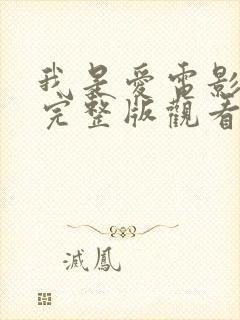 我是愛電影
完整版觀看
滅鳳